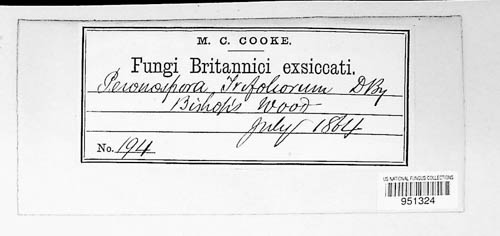 M. C. COOKE.
Fungi Britannici exsiccati.
Peronospora Trifoliorum DBy
Bishop's Wood
July 1864
No. 194
US NATIONAL FUNGUS COLLECTIONS
951324